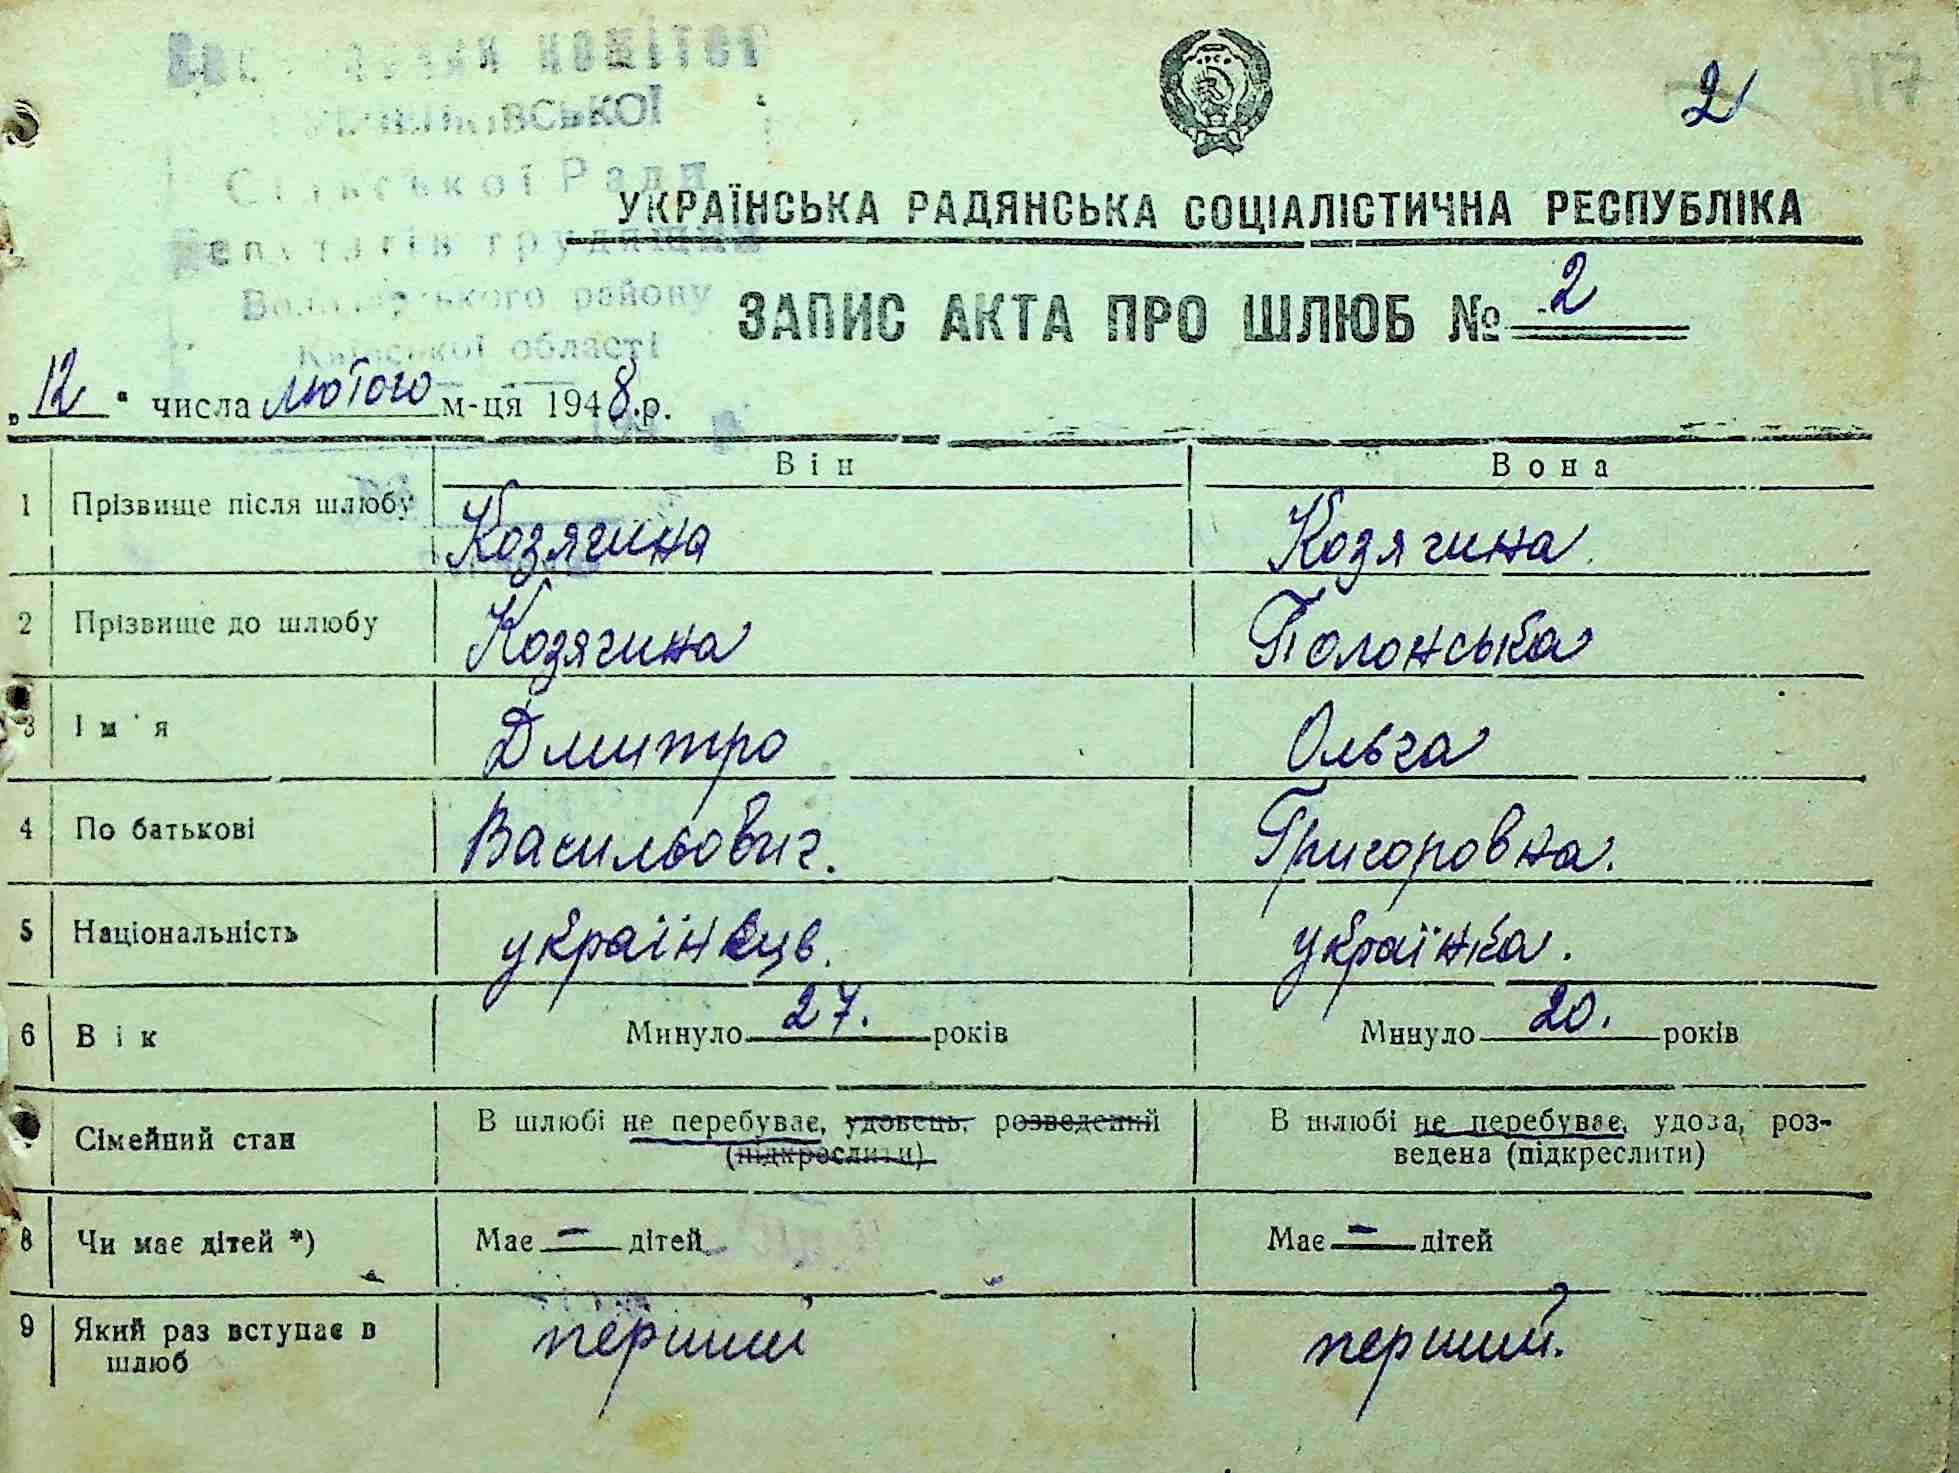 комітет
СЬКОЇ
Сільської Ради
депутатів трудящих
району
Київської області
2
117
УКРАЇНСЬКА РАДЯНСЬКА СОЦІАЛІСТИЧНА РЕСПУБЛІКА
ЗАПИС АКТА ПРО ШЛЮБ № 2
„12“ числа лютого м-ця 1948.р.
Він Вона
1 Прізвище після шлюбу Козячина Козячина
2 Прізвище до шлюбу Козячина Полонська
3 Ім'я Дмитро Ольга
4 По батькові Васильович. Григоровна.
5 Національність українець. українка.
6 Вік Минуло 27. років Минуло 20. років
Сімейний стан В шлюбі не перебуває, удовець, розведений В шлюбі не перебуває, удова, роз-
(підкреслити) ведена (підкреслити)
8 Чи має дітей *) Має – дітей Має – дітей
9 Який раз вступає в перший перший.
шлюб